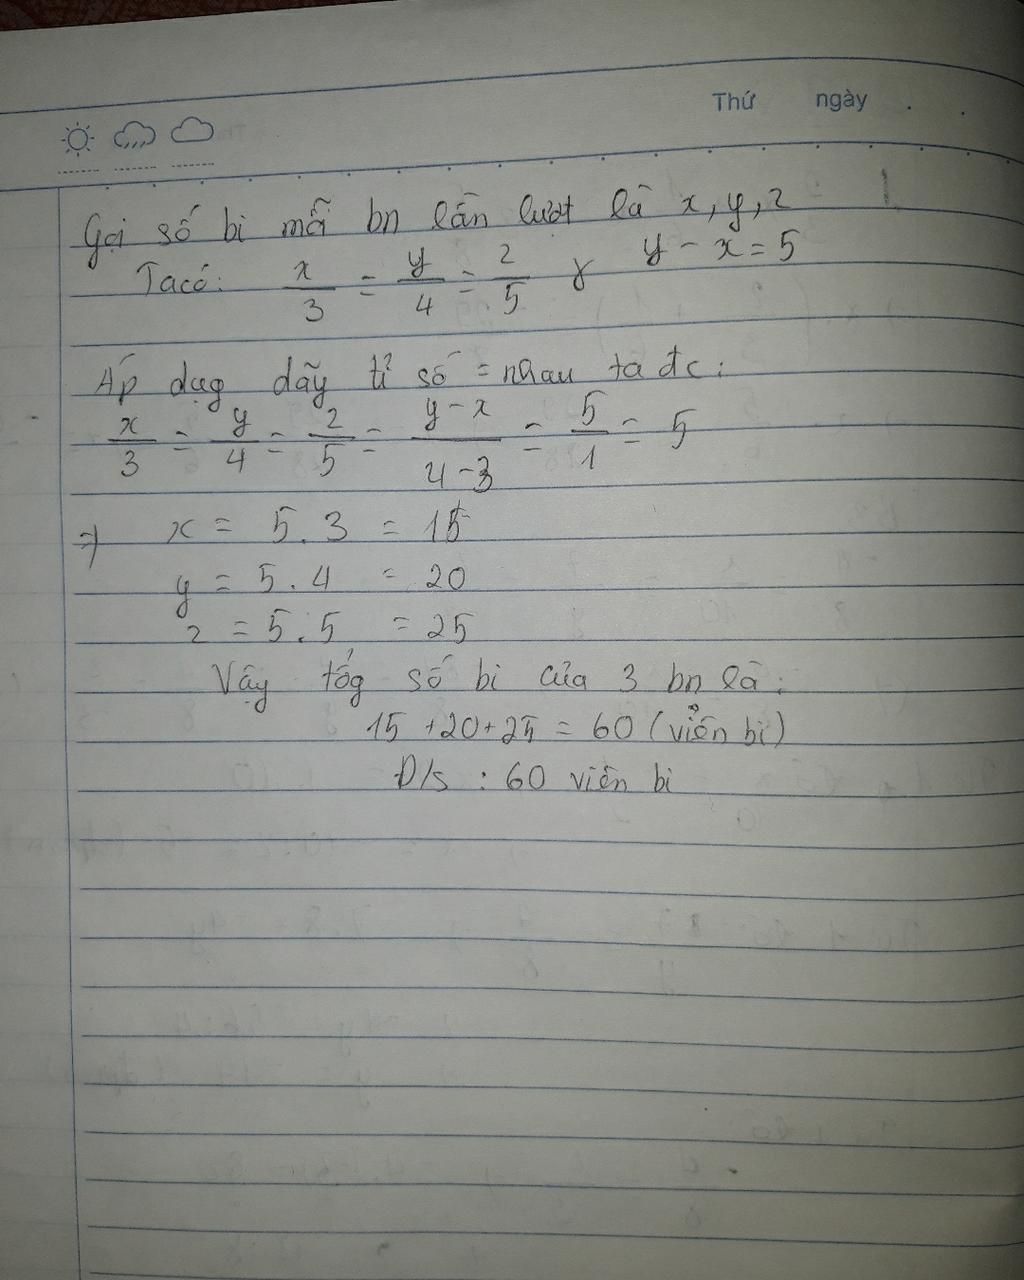 Thứ ngày . .
Gọi số bi mỗi bn lần lượt là x, y, z
Ta có: x/3 = y/4 = z/5 & y - x = 5
Áp dụg dãy tỉ số = nhau ta đc:
x/3 = y/4 = z/5 = y-x/4-3 = 5/1 = 5
=> x = 5.3 = 15
y = 5.4 = 20
z = 5.5 = 25
Vậy tổg số bi của 3 bn là:
15 +20+25 = 60 (viên bi)
Đ/s : 60 viên bi